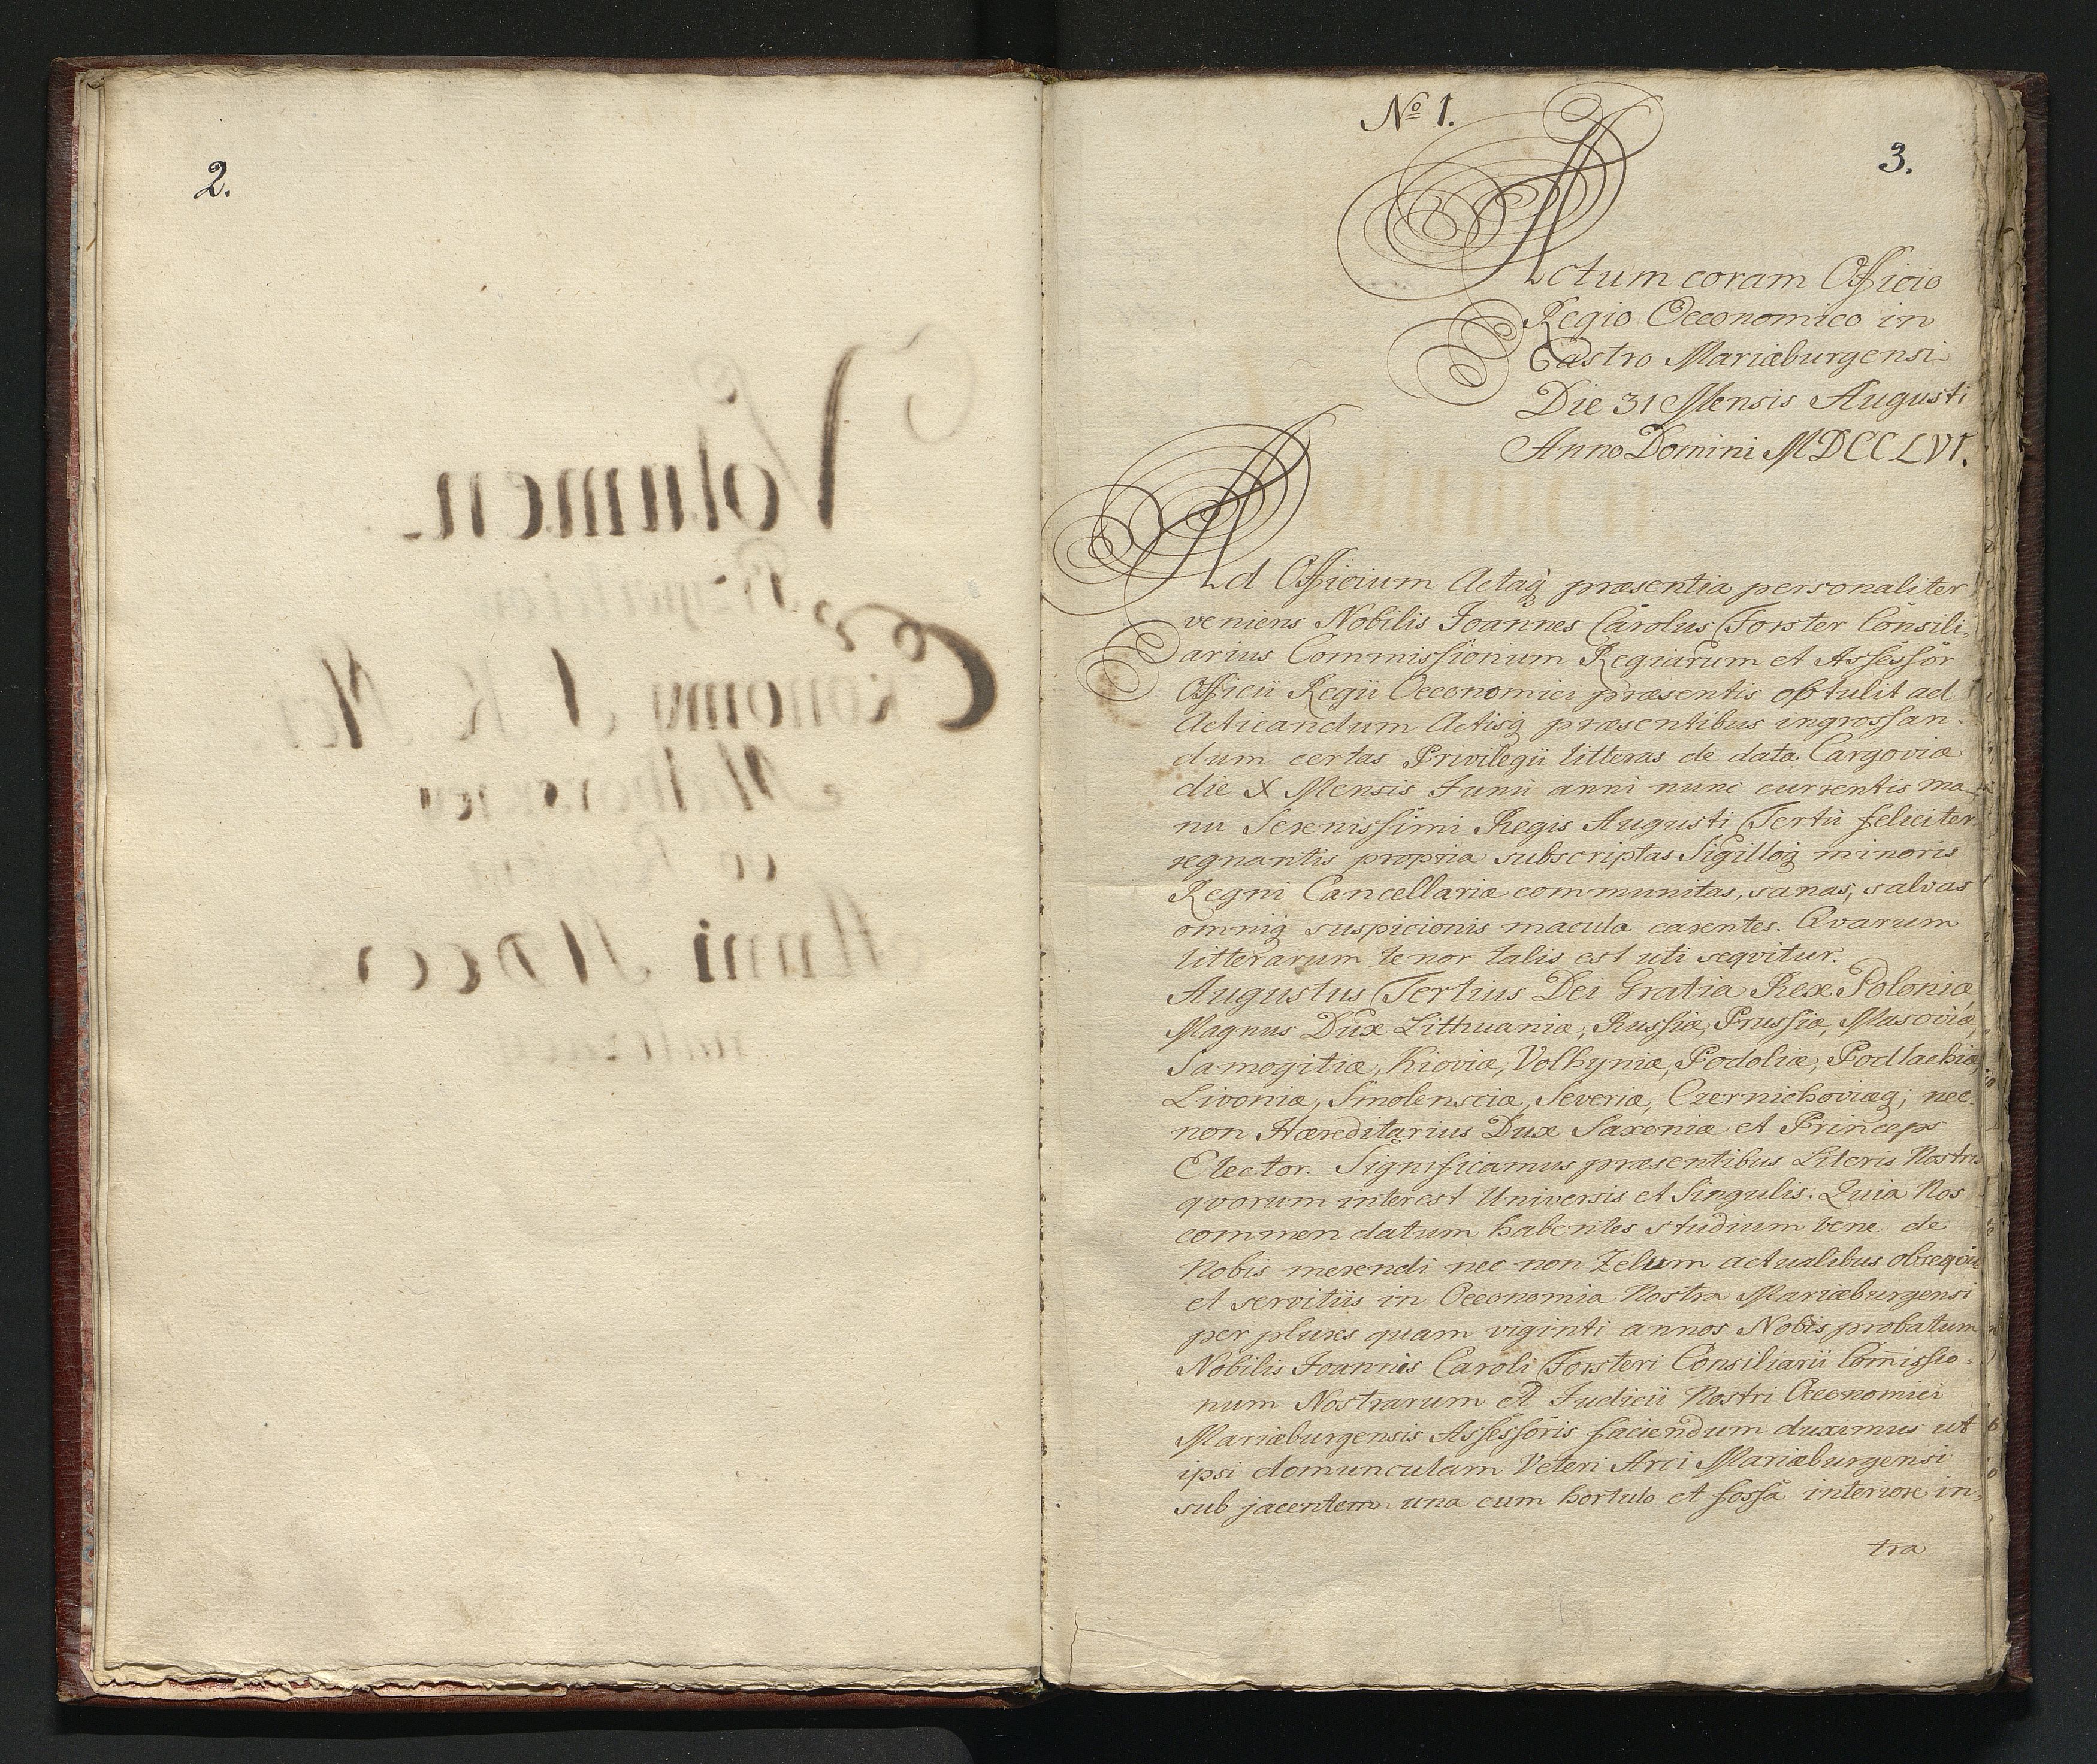 2.
Nº 1.
3.
Actum coram Officio
Regio Oeconomico in
Castro Mariæburgensi
Die 31 Mensis Augusti
Anno Domini MDCCLVI.
Ad Officium Actaq præsentia personaliter
veniens Nobilis Joannes Carolus Forster Consili-
arius Commissionum Regiarum et Assessor
Officii Regii Oeconomici præsentis obtulit ad
Acticandum Actisq præsentibus ingrossan-
dum certas Privilegii litteras de data Cargoviæ
die X Mensis Junii anni nunc currentis ma-
nu Serenissimi Regis Augusti Tertii feliciter
regnantis propria subscriptas Sigilloq minoris
Regni Cancellariæ communitas, sanas, salvas
omniq suspicionis macula carentes. Qvarum
litterarum tenor talis est uti seqvitur.
Augustus Tertius Dei Gratia Rex Poloniæ,
Magnus Dux Lithuaniæ, Russiæ, Prussiæ, Masoviæ,
Samogitiæ, Kioviæ, Volhyniæ, Podoliæ, Podlachiæ,
Livoniæ, Smolensciæ, Severiæ, Czernichoviæq; nec
non Hæreditarius Dux Saxoniæ et Princeps
Elector. Significamus præsentibus Literis Nostris
qvorum interest Universis et Singulis. Quia Nos
commendatum habentes studium bene de
Nobis merendi nec non Zelum actualibus obseqviis
et servitiis in Oeconomia Nostra Mariæburgensi
per plures quam viginti annos Nobis probatum
Nobilis Joannis Caroli Forsteri Consiliarii Com̃issio-
num Nostrarum et Judicii Nostri Oeconomici
Mariæburgensis Assessoris faciendum duximus ut
ipsi domunculam Veteri Arci Mariæburgensi
sub jacentem una cum hortulo et fossa interiore in-
tra